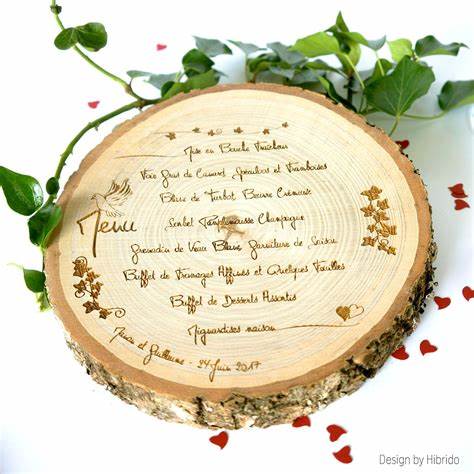 Mise en Bouche Fraîcheur
Foie Gras de Canard Spéculoos et Framboises
Blanc de Turbot Beurre Crémant
Menu
Sorbet Pamplemousse Champagne
Grenadin de Veau Blanc Garniture de Saison
Buffet de Fromages Affinés et Quelques Feuilles
Buffet de Desserts Assortis
Mignardises maison
et Guillaume - 24 Juin 2017
Design by Hibrido